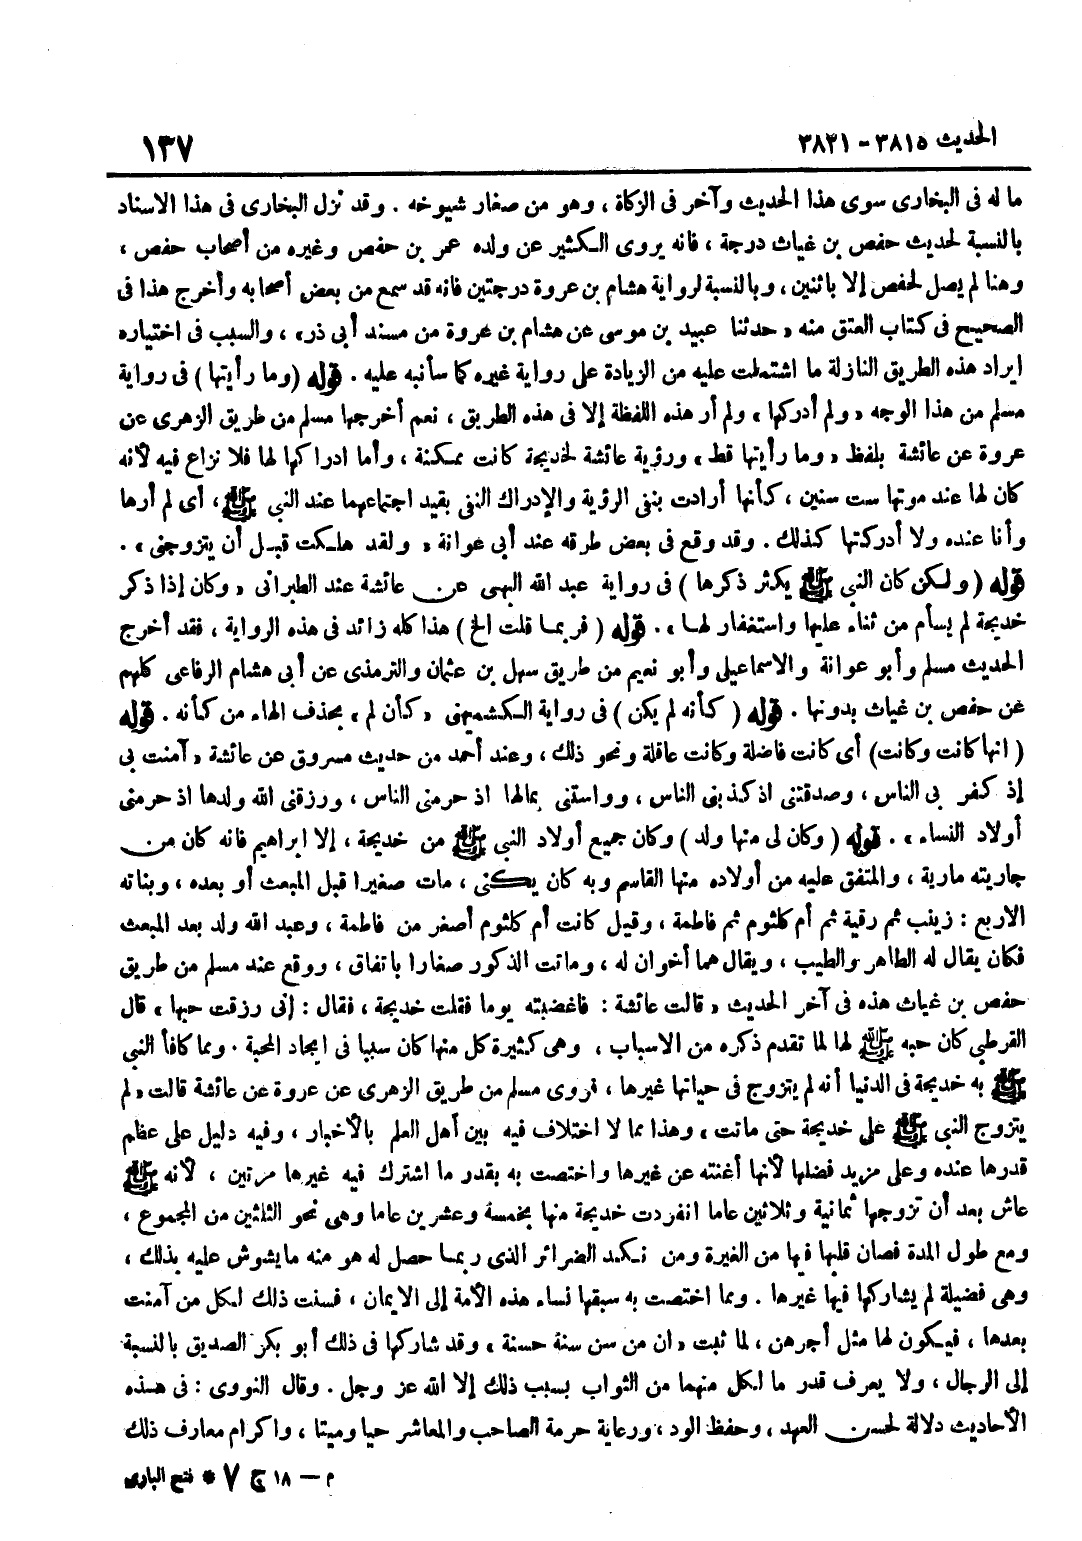 الحديث ٣٨١٥ - ٣٨٢١
١٣٧
ما له فى البخارى سوى هذا الحديث وآخر فى الزكاة ، وهو من صغار شيوخه . وقد نزل البخارى فى هذا الاسناد
بالنسبة لحديث حفص بن غياث درجة ، فانه يروى الكثير عن ولده عمر بن حفص وغيره من أصحاب حفص ،
وهنا لم يصل لحفص إلا باثنين ، وبالنسبة لرواية هشام بن عروة درجتين فانه قد سمع من بعض أصحابه وأخرج هذا فى
الصحيح فى كتاب العتق منه « حدثنا عبيد بن موسى عن هشام بن عروة من مسند أبى ذر » ، والسبب فى اختياره
ايراد هذه الطريق النازلة ما اشتملت عليه من الزيادة على رواية غيره كما سأنبه عليه . قوله (وما رأيتها) فى رواية
مسلم من هذا الوجه « ولم أدركها » ولم أر هذه اللفظة إلا فى هذه الطريق ، نعم أخرجها مسلم من طريق الزهرى عن
عروة عن عائشة بلفظ « وما رأيتها قط » ورؤية عائشة لخديجة كانت ممكنة ، وأما ادراكها لها فلا نزاع فيه لأنه
كان لها عند موتها ست سنين ، كأنها أرادت بنفى الرؤية والإدراك النفى بقيد اجتماعهما عند النبى ﷺ ، أى لم أرها
وأنا عنده ولا أدركتها كذلك . وقد وقع فى بعض طرقه عند أبى عوانة « ولقد هلكت قبل أن يتزوجنى » .
قوله ( ولكن كان النبى ﷺ يكثر ذكرها ) فى رواية عبد الله البهى عن عائشة عند الطبرانى « وكان إذا ذكر
خديجة لم يسأم من ثناء عليها واستغفار لها » . قوله ( فربما قلت الخ ) هذا كله زائد فى هذه الرواية ، فقد أخرج
الحديث مسلم وأبو عوانة والاسماعيلى وأبو نعيم من طريق سهل بن عثمان والترمذى عن أبى هشام الرفاعى كلهم
عن حفص بن غياث بدونها . قوله ( كأنه لم يكن ) فى رواية الكشميهنى « كأن لم » بحذف الهاء من كأنه . قوله
( انها كانت وكانت) أى كانت فاضلة وكانت عاقلة ونحو ذلك ، وعند أحمد من حديث مسروق عن عائشة « آمنت بى
إذ كفر بى الناس ، وصدقتنى اذ كذبنى الناس ، وواستنى بمالها اذ حرمنى الناس ، ورزقنى الله ولدها اذ حرمنى
أولاد النساء » . قوله ( وكان لى منها ولد ) وكان جميع أولاد النبى ﷺ من خديجة ، إلا ابراهيم فانه كان من
جاريته مارية ، والمتفق عليه من أولاده منها القاسم وبه كان يكنى ، مات صغيرا قبل المبعث أو بعده ، وبناته
الاربع : زينب ثم رقية ثم أم كلثوم ثم فاطمة ، وقيل كانت أم كلثوم أصغر من فاطمة ، وعبد الله ولد بعد المبعث
فكان يقال له الطاهر والطيب ، ويقال هما أخوان له ، وماتت الذكور صغارا باتفاق ، ووقع عند مسلم من طريق
حفص بن غياث هذه فى آخر الحديث « قالت عائشة : فاغضبته يوما فقلت خديجة ، فقال : إنى رزقت حبها » قال
القرطبى كان حبه ﷺ لها لما تقدم ذكره من الاسباب ، وهى كثيرة كل منها كان سببا فى ايجاد المحبة . ومما كافأ النبى
ﷺ به خديجة فى الدنيا أنه لم يتزوج فى حياتها غيرها ، فروى مسلم من طريق الزهرى عن عروة عن عائشة قالت « لم
يتزوج النبى ﷺ على خديجة حتى ماتت » وهذا مما لا اختلاف فيه بين أهل العلم بالأخبار ، وفيه دليل على عظم
قدرها عنده وعلى مزيد فضلها لأنها أغنته عن غيرها واختصت به بقدر ما اشترك فيه غيرها مرتين ، لأنه ﷺ
عاش بعد أن تزوجها ثمانية وثلاثين عاما انفردت خديجة منها بخمسة وعشرين عاما وهى نحو الثلثين من المجموع ،
ومع طول المدة فصان قلبها فيها من الغيرة ومن نكد الضرائر الذى ربما حصل له هو منه ما يشوش عليه بذلك ،
وهى فضيلة لم يشاركها فيها غيرها . ومما اختصت به سبقها نساء هذه الأمة إلى الايمان ، فسنت ذلك لكل من آمنت
بعدها ، فيكون لها مثل أجرهن ، لما ثبت « ان من سن سنة حسنة » وقد شاركها فى ذلك أبو بكر الصديق بالنسبة
إلى الرجال ، ولا يعرف قدر ما لكل منهما من الثواب بسبب ذلك إلا الله عز وجل . وقال النووى : فى هذه
الأحاديث دلالة لحسن العهد ، وحفظ الود ، ورعاية حرمة الصاحب والمعاشر حيا وميتا ، واكرام معارف ذلك
م — ١٨ ج ٧ * فتح البارى